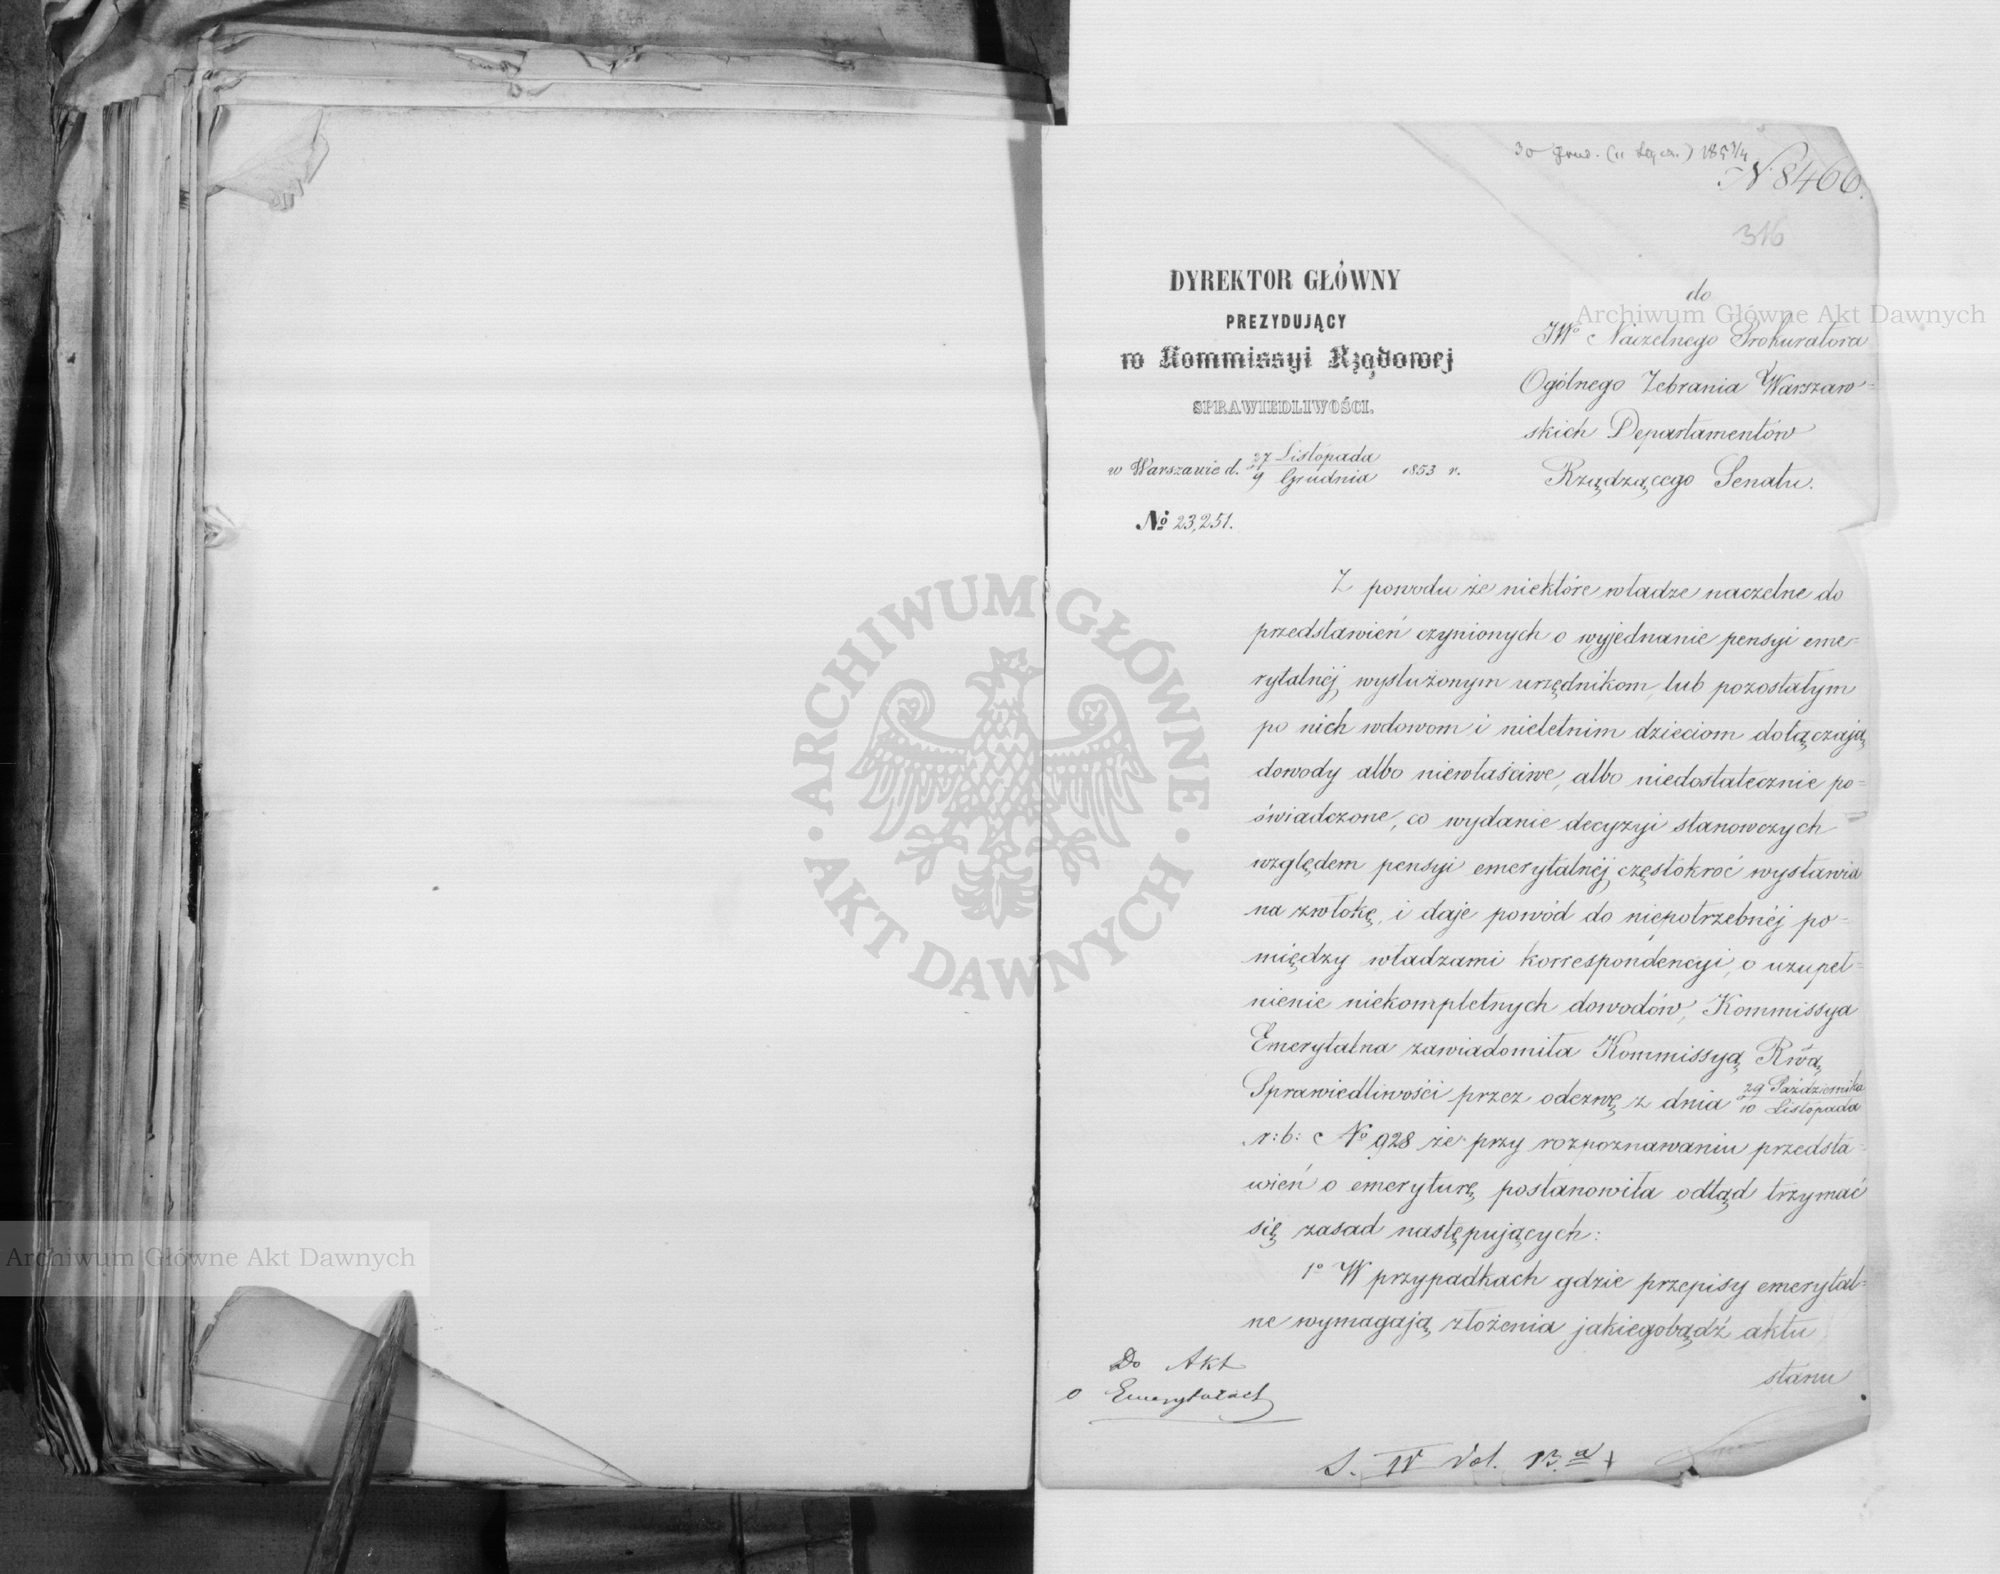 30 Grud. (11 Stycz.) 1853/4
N. 8466.
316
DYREKTOR GŁÓWNY
PREZYDUJĄCY
w Kommissyi Rządowej
SPRAWIEDLIWOŚCI.
w Warszawie d. 27 Listopada / 9 Grudnia 1853 r.
№ 23,251.
do
JWo Naczelnego Prokuratora
Ogólnego Zebrania Warszaw=
skich Departamentów
Rządzącego Senatu.
Z powodu że niektóre władze naczelne do
przedstawień czynionych o wyjednanie pensyi eme=
rytalnéj wysłużonym urzędnikom, lub pozostałym
po nich wdowom i nieletnim dzieciom dołączają
dowody albo niewłaściwe, albo niedostatecznie po=
świadczone, co wydanie decyzyi stanowczych
względem pensyi emerytalnéj częstokroć wystawia
na zwłokę, i daje powód do niepotrzebnéj po=
między władzami korrespondencyi, o uzupeł=
nienie niekompletnych dowodów, Kommissya
Emerytalna zawiadomiła Kommissyą Rwą
Sprawiedliwości przez odezwę z dnia 29 Października / 10 Listopada
r: b: No 928 że przy rozpoznawaniu przedsta=
wień o emeryturę postanowiła odtąd trzymać
się zasad następujących:
1o W przypadkach gdzie przepisy emerytal=
ne wymagają złożenia jakiegobądź aktu
stanu
Do Akt
o Emeryturach
S. IV Vol. 13.a
Archiwum Główne Akt Dawnych
Archiwum Główne Akt Dawnych
ARCHIWUM GŁÓWNE · AKT DAWNYCH ·